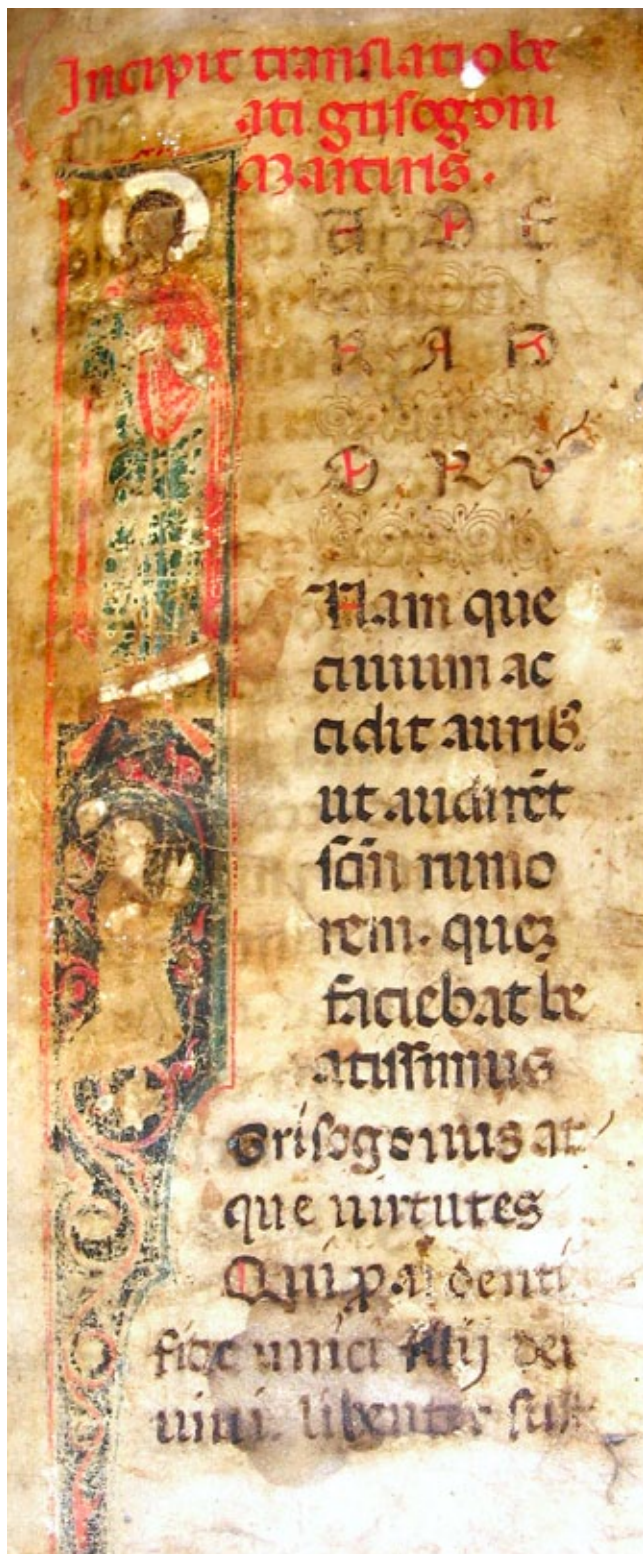 Incipit translatio be
ati grisogoni
Martiris.
A D E
R A D
D R V
Nam que
ciuium ac
cidit aurib;
ut audirēt
scīi rumo
rem. quez
faciebat be
atissimus
Grisogonus at
que uirtutes
Qui denti
fide unici filij dei
uiui libenter